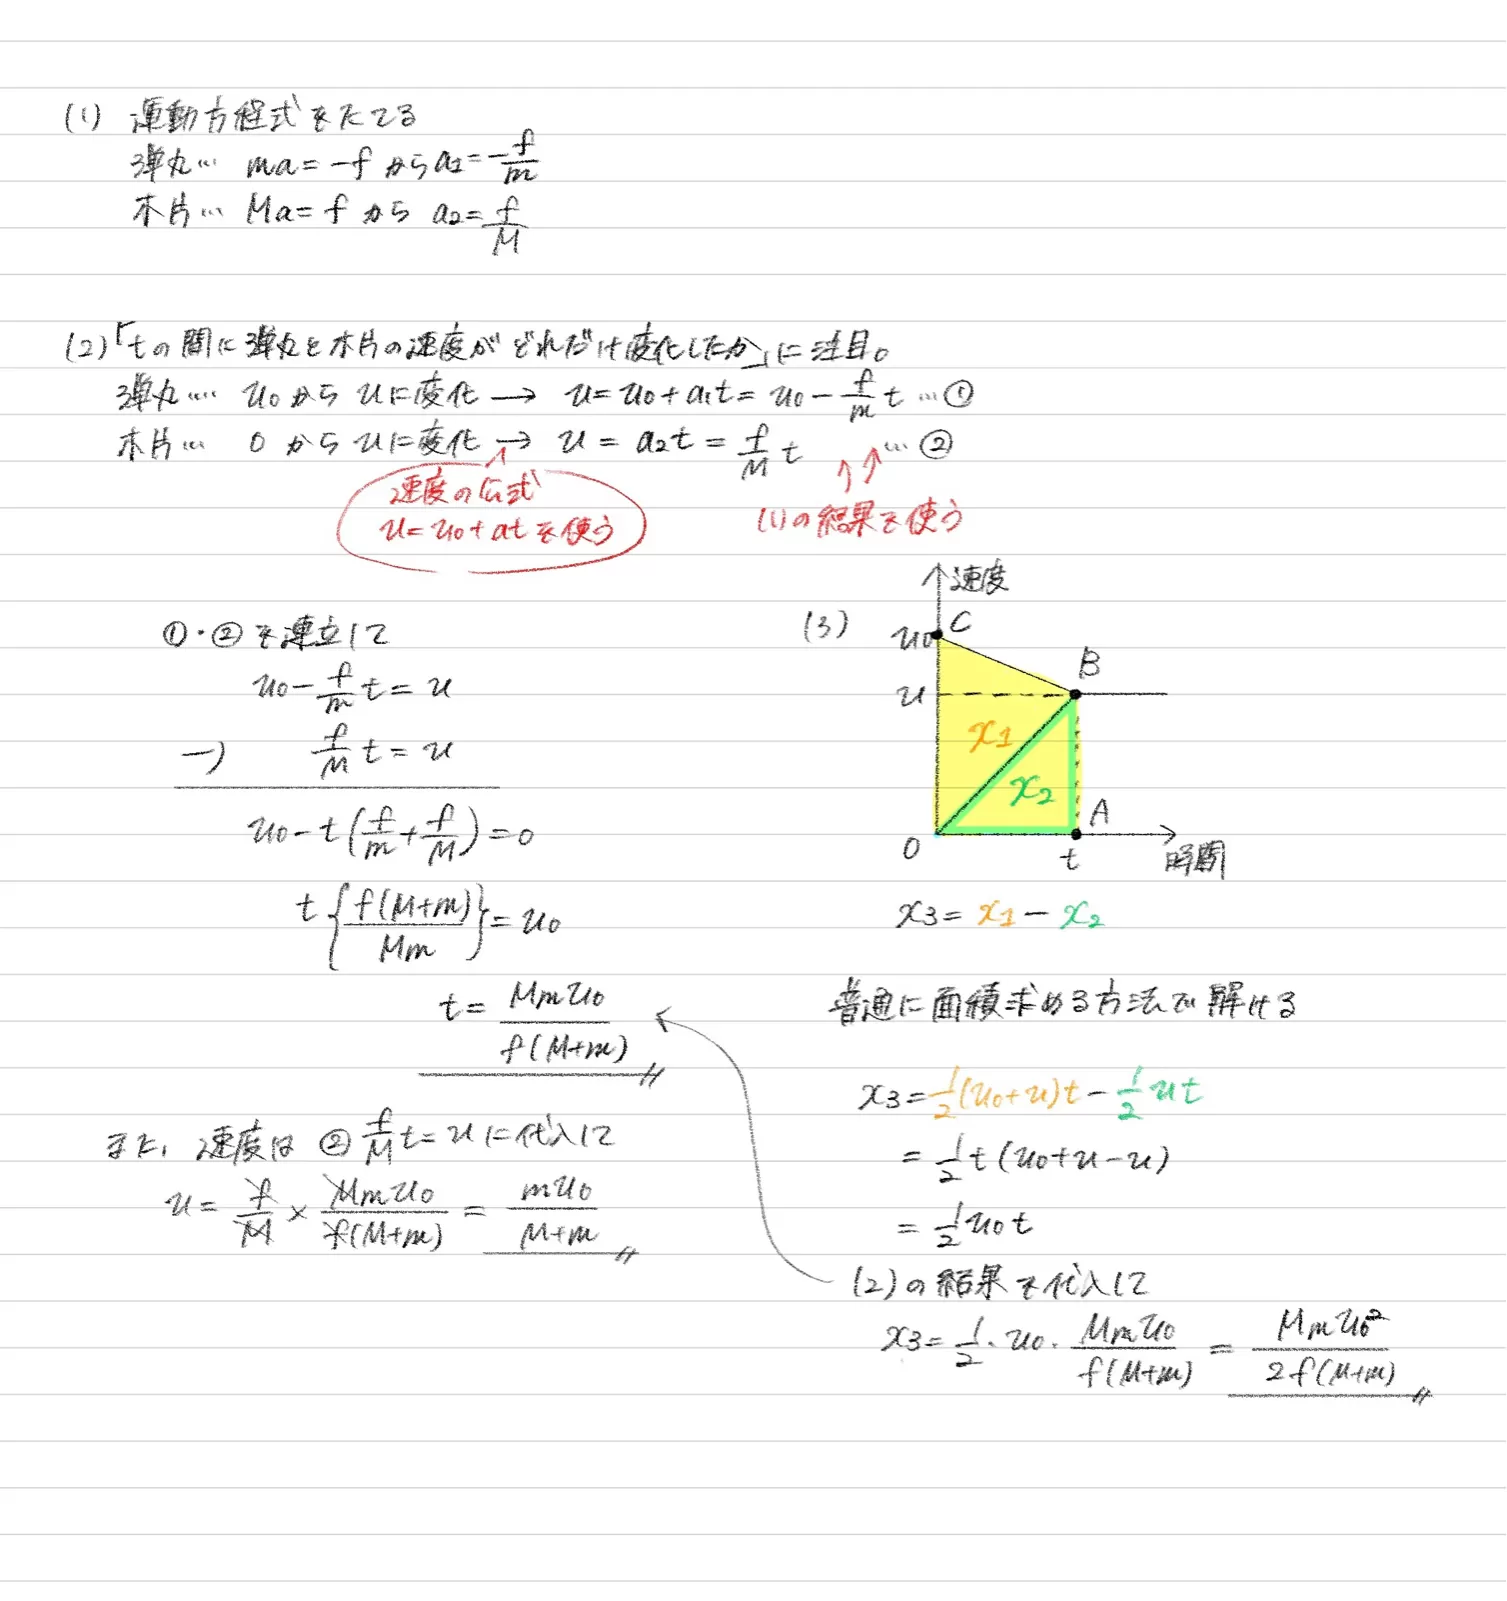 (1) 運動方程式をたてる
弾丸… ma = -f から a1 = -f/m
木片… Ma = f から a2 = f/M
(2)「tの間に弾丸と木片の速度がどれだけ変化したか」に注目。
弾丸… u0 から uに変化 → u = u0 + a1t = u0 - f/m t …①
木片… 0 から uに変化 → u = a2t = f/M t …②
速度の公式
u = u0 + at を使う
(1)の結果を使う
①・②を連立して
u0 - f/m t = u
-) f/M t = u
u0 - t(f/m + f/M) = 0
t{f(M+m)/Mm} = u0
t = Mmu0/f(M+m)
また、速度は ② f/M t = u に代入して
u = f/M × Mmu0/f(M+m) = mu0/M+m
(3)
速度
u0 C
u B
x1
x2
A
O t 時間
x3 = x1 - x2
普通に面積求める方法で解ける
x3 = 1/2(u0+u)t - 1/2 ut
= 1/2 t(u0+u-u)
= 1/2 u0t
(2)の結果を代入して
x3 = 1/2・u0・Mmu0/f(M+m) = Mmu0²/2f(M+m)